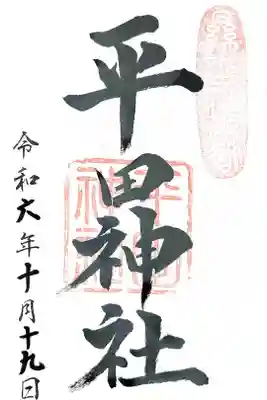 平田神社
令和六年十月十九日